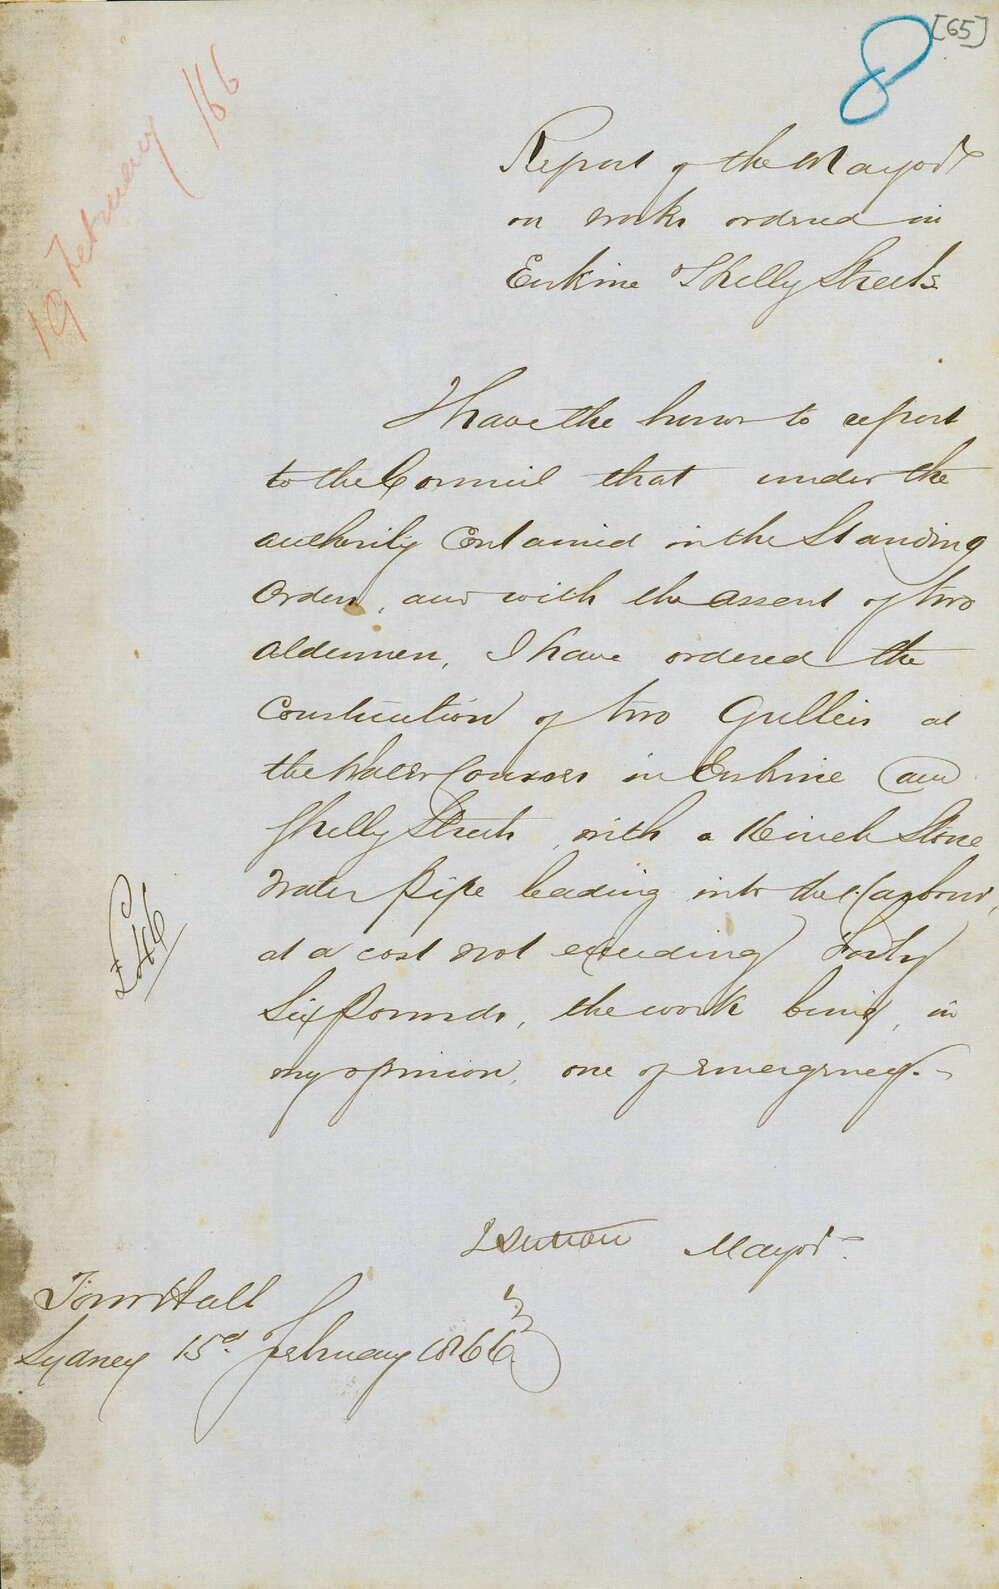 [65]
8
19 February /66
Report of the Mayor
on works ordered in
Erskine & Shelly Streets.
I have the honor to report
to the Council that under the
authority Contained in the Standing
Orders, and with the assent of two
Aldermen, I have ordered the
Construction of two Gulleis at
the Water Courses in Erskine and
Shelly Streets, with a 16 inch Stone
Water Pipe leading into the Harbour,
at a cost not exceeding Forty
Six Pounds, the work being, in
my opinion, one of emergency.
£46
J Sutton Mayor
Town Hall
Sydney 15th February 1866